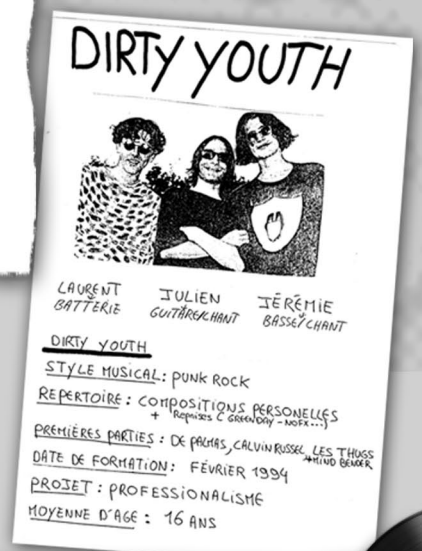 DIRTY YOUTH
LAURENT JULIEN JÉRÉMIE
BATTERIE GUITARE/CHANT BASSE/CHANT
DIRTY YOUTH
STYLE MUSICAL : PUNK ROCK
REPERTOIRE : COMPOSITIONS PERSONELLES
+ Reprises (GREENDAY - NOFX...)
PREMIÈRES PARTIES : DE PALMAS, CALVIN RUSSEL, LES THUGS
+ MIND BENDER
DATE DE FORMATION : FÉVRIER 1994
PROJET : PROFESSIONALISME
MOYENNE D'AGE : 16 ANS